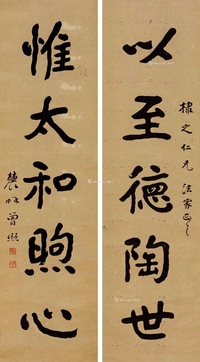 以至德陶世
棣之仁兄 法家正之
惟太和煦心
農髯曾熙